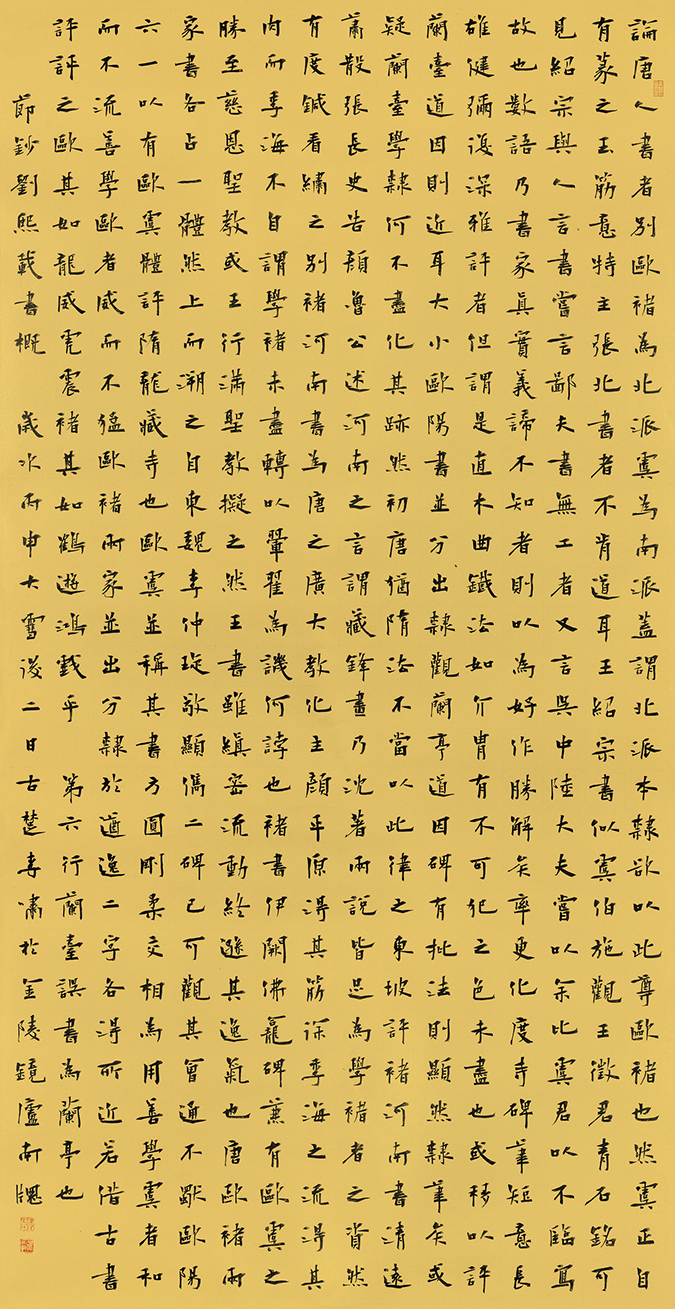 論唐人書者別歐褚為北派虞為南派蓋謂北派本隸欲以此尊歐褚也然虞正自
有篆之玉筋意特主張北書者不肯道耳王紹宗書似虞伯施觀王徵君青石銘可
見紹宗與人言書嘗言鄙夫書無工者又言吳中陸大夫嘗以余比虞君以不臨寫
故也數語乃書家真實義諦不知者則以為好作勝解矣率更化度寺碑筆短意長
雄健彌復深雅評者但謂是直木曲鐵法如介冑有不可犯之色未盡也或移以評
蘭臺道因則近耳大小歐陽書並分出隸觀蘭亭道因碑有批法則顯然隸筆矣或
疑蘭臺學隸何不盡化其跡然初唐猶隋法不當以此律之東坡評褚河南書清遠
蕭散張長史告顏魯公述河南之言謂藏鋒畫乃沈著兩說皆足為學褚者之資然
有度鍼看繡之別褚河南書為唐之廣大教化主顏平原得其筋徐季海之流得其
肉而季海不自謂學褚未盡轉以翬翟為譏何誖也褚書伊闕佛龕碑兼有歐虞之
勝至慈恩聖教或王行滿聖教擬之然王書雖縝密流動終遜其逸氣也唐歐褚兩
家書各占一體然上而溯之自東魏李仲琁敬顯儁二碑已可觀其會通不獨歐陽
六一以有歐虞體評隋龍藏寺也歐虞並稱其書方圓剛柔交相為用善學虞者和
而不流善學歐者威而不猛歐褚兩家並出分隸於遒逸二字各得所近若借古書
評評之歐其如龍威虎震褚其如鶴遊鴻戲乎 第六行蘭臺誤書為蘭亭也
節鈔劉熙載書概 歲次丙申大雪後二日古楚李嘯於金陵鏡廬南牕